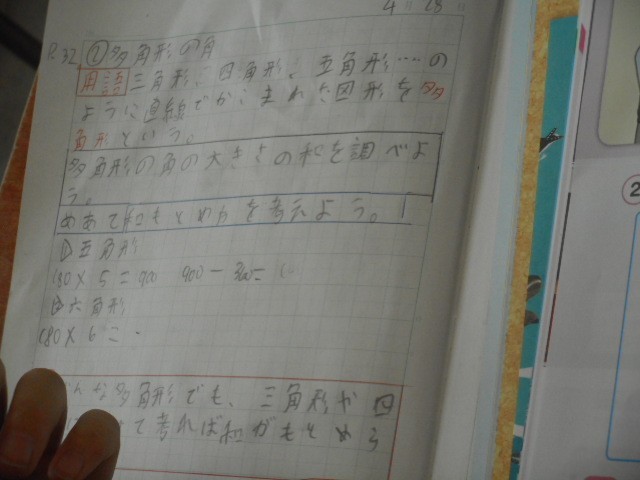 4 28
P.32 ①多角形の角
用語 三角形、四角形、五角形……の
ように直線でかこまれた図形を多
角形という。
多角形の角の大きさの和を調べよ
う。
めあて 和もとめかを考えよう。
①五角形
180×5=900 900-360=
②六角形
180×6=
な多角形でも、三角形や四
て考れば和がもとめら
②